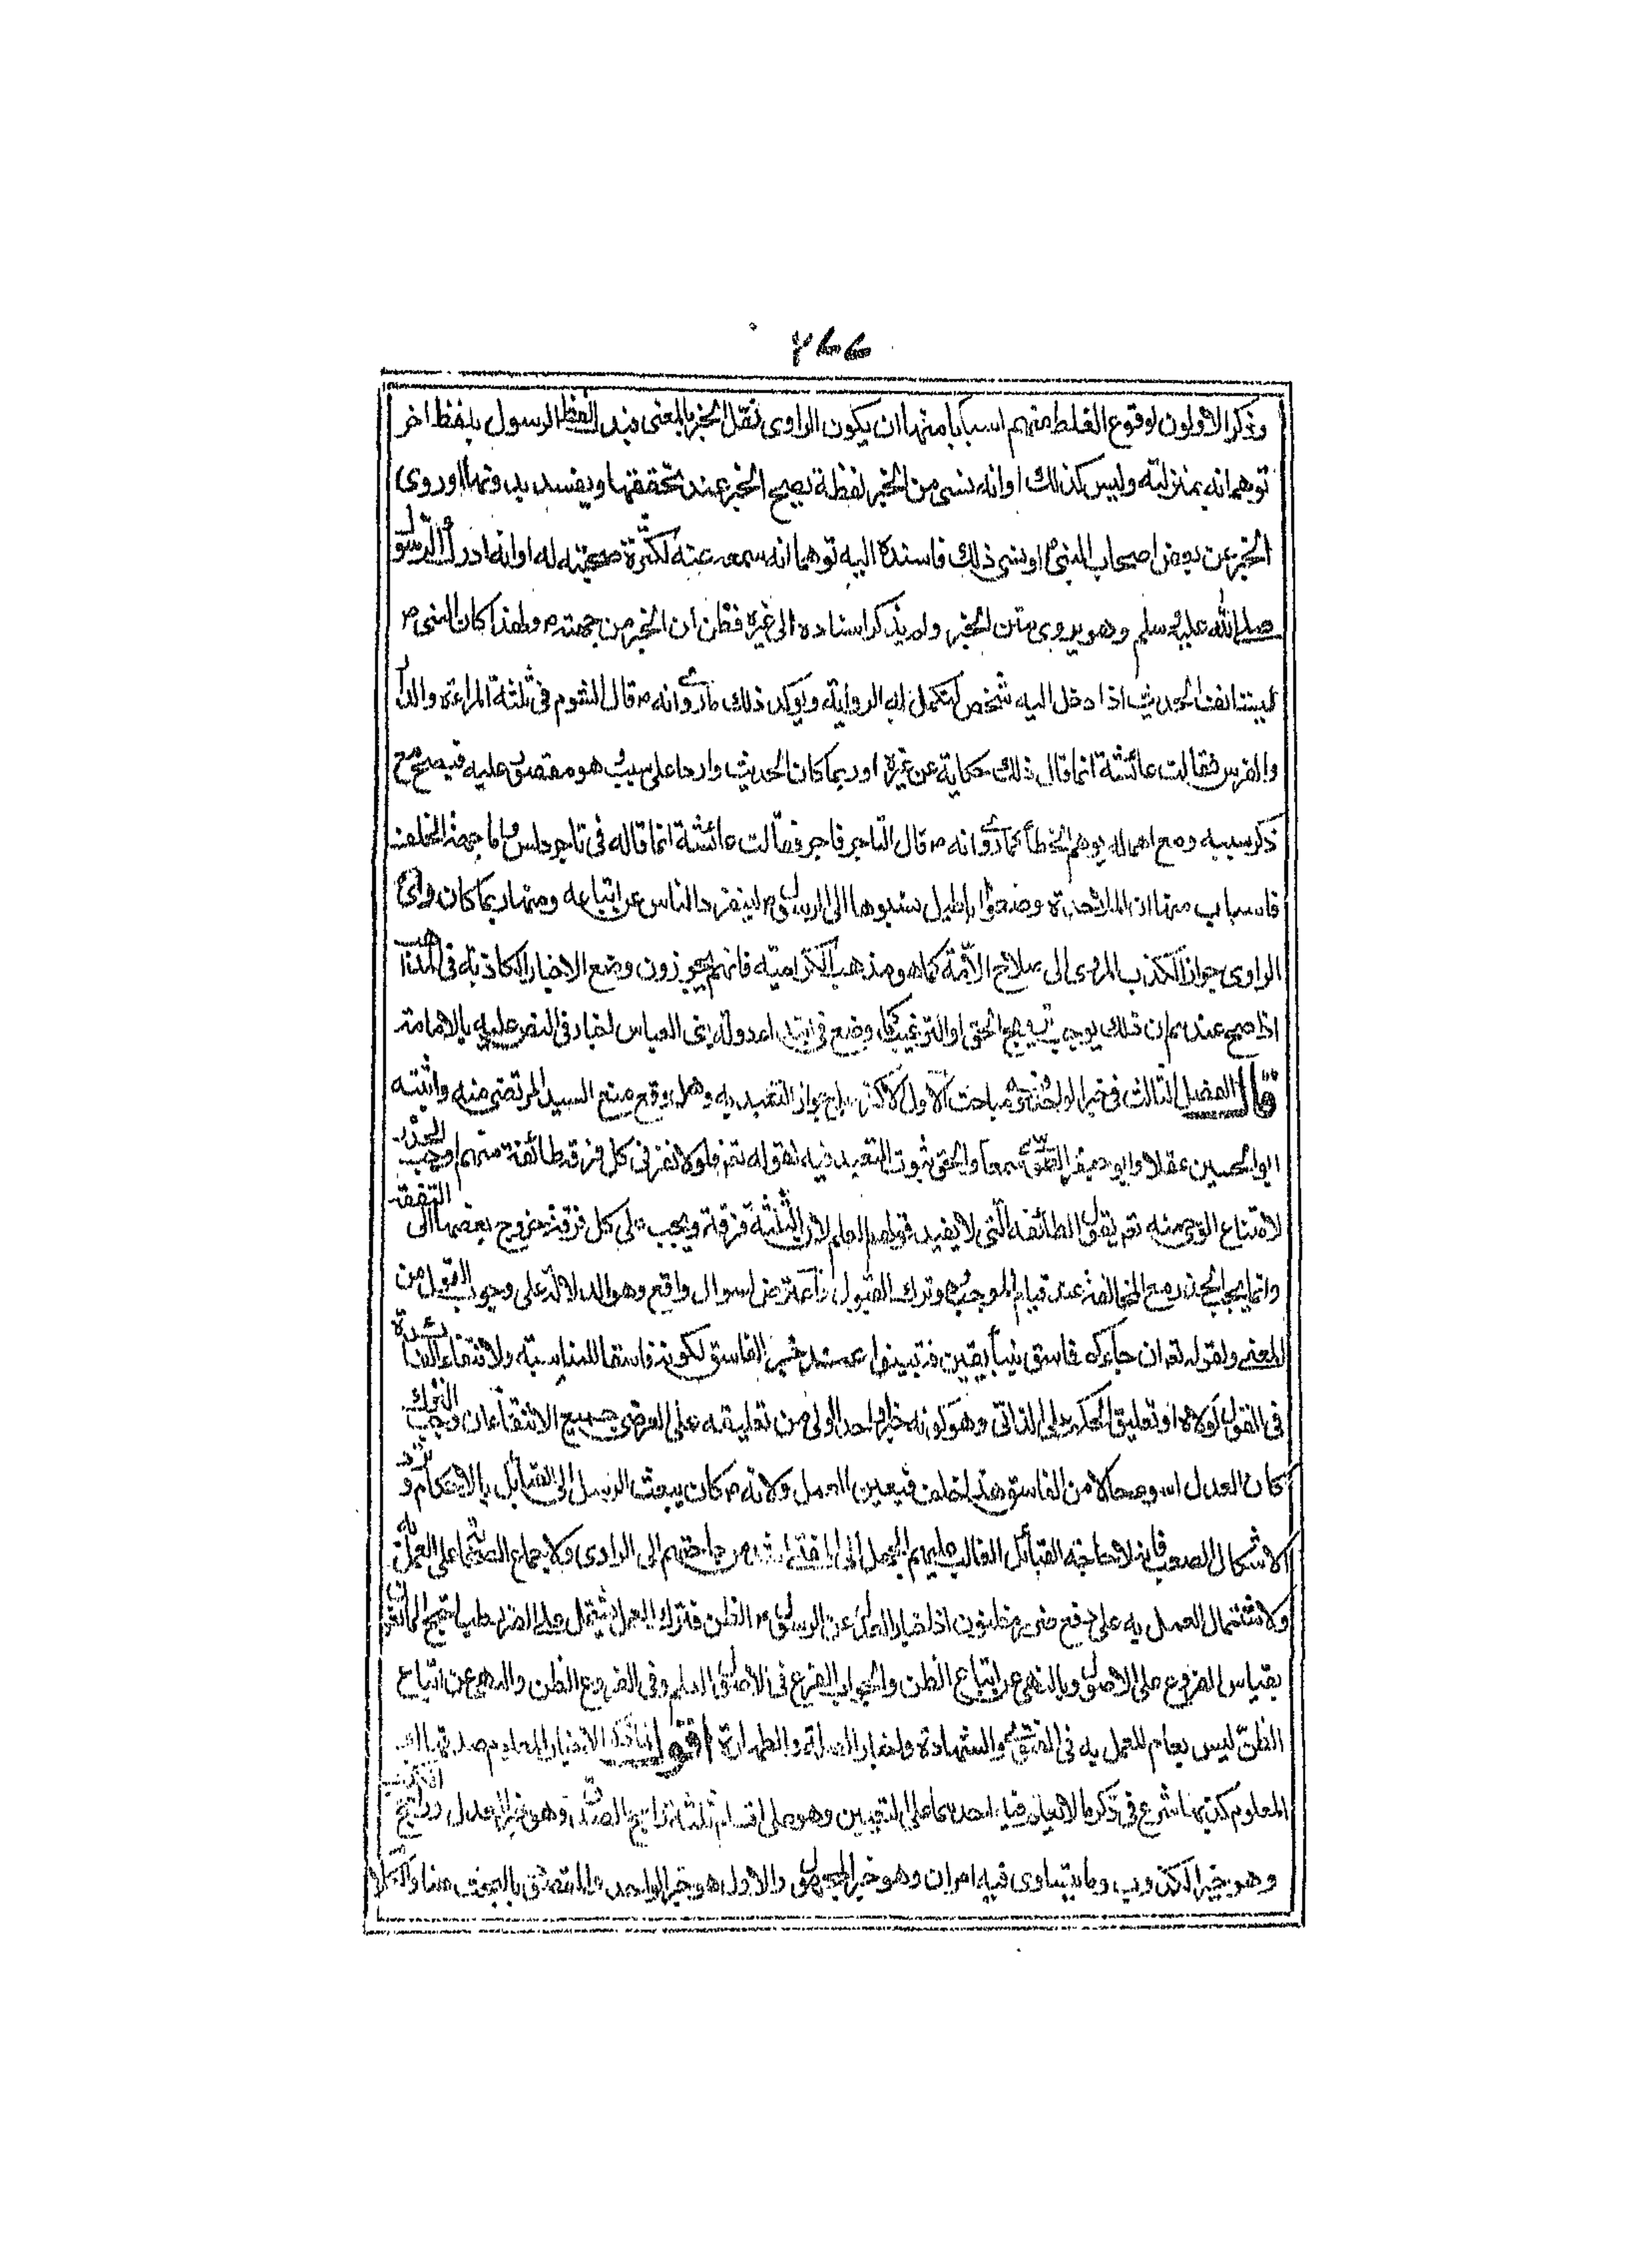 ٢٦٦
وذكر الاولون لوقوع الغلط منهم اسبابا منها ان يكون الراوى نقل الخبر بالمعنى فبدل لفظ الرسول بلفظ اخر
توهما انه بمنزلته وليس كذلك او انه نسى من الخبر لفظة يصح الخبر عند تحققها ويفسد بدونها او روى
الخبر عن بعض اصحاب النبى م ونسى ذلك فاسنده اليه توهما انه سمعه عنه لكثرة صحبته له او انه ادرك الرسول
صلى الله عليه وسلم وهو يروى متن الخبر ولم يذكر اسناده الى غيره فظن ان الخبر من جهته م ولهذا كان النبى م
يستانف الحديث اذا دخل اليه شخص لتكمل له الرواية ويؤكد ذلك ما روى انه م قال الشوم فى ثلثة المراءة والدار
والفرس فقالت عائشة انما قال ذلك حكاية عن غيره او ربما كان الحديث واردا على سبب هو مقصور عليه فيصح مع
ذكر سببه ومع اهماله يوهم الخطأ كما روى انه م قال التاجر فاجر فقالت عائشة انما قاله فى تاجر دلس واما جهة الخلف
فاسباب منها ان الملاحدة وضعوا اباطيل نسبوها الى الرسول م لينفرد الناس عن اتباعه ومنها ربما كان راى
الراوى جواز الكذب المؤدى الى صلاح الامة كما هو مذهب الكرامية فانهم يجوزون وضع الاخبار الكاذبة فى المذاهب
اذا صح عندهم ان ذلك يوجب ترويج الحق او الترغيب كما وضع فى ابتداء دولة بنى العباس اخبار فى النص عليه بالامامة
قال الفصل الثالث فى خبر الواحد وفيه مباحث الاول الاكثر على جواز التعبد به وهل وقع منع السيد المرتضى منه واثبته
ابو الحسين عقلا وابو جعفر الطوسى سمعا والحق ثبوت التعبد فيه لقوله تعم فلولا نفر فى كل فرقة طائفة منهم اوجب الحذر
لامتناع الترجى منه تعم بقول الطائفة التى لا يفيد قولهم العلم لان الثلثة فرقة ويجب على كل فرقة خروج بعضها الى التفقه
وانما يجب الحذر مع المخالفة عند قيام الموجب وهو ترك القبول اعترض سوال واقع وهو الدلالة على وجوب القبول من
المفتى ولقوله تعم ان جاءكم فاسق بنبأ فتبينوا عند خبر الفاسق لكونه فاسقا للمناسبة ولانتفاء الفائدة
فى القول لولاه او تعليق الحكم على الذاتى وهو كونه خبر واحد اولى من تعليقه على العرضى جميع الانتفاء ان وجب الترك
كان العدل اسوء حالا من الفاسق هذا خلف فتعين العمل ولانه م كان يبعث الرسل الى القبائل بالاحكام و
الاشكال الصعب فانه لا حاجة القبائل الغالب عليهم الجهل الى المفتى اشد من حاجتهم الى الراوى ولاجماع الصحابة على العمل به
ولاشتمال العمل به على دفع ضرر مظنون اذ اخبار العدل عن الرسول م الظن فترك العمل يشتمل على الضرر ظنا احتج المانعون
بقياس الفروع على الاصول وبالنهى عن اتباع الظن والجواب الفرع فى الاصول العلم وفى الفروع الظن والنهى عن اتباع
الظن ليس بعام للعمل به فى الفتوى والشهادة واخبار القبلة والطهارة اقول لما ذكر الاخبار المعلوم صدقها و
المعلوم كذبها شرع فى ذكر ما لا يعلم فيه احدهما على التعيين وهو على اقسام ثلثة راجح الصدق وهو خبر العدل وراجح الكذب
وهو خبر الكذوب وما يتساوى فيه امران وهو خبر المجهول والاول هو خبر الواحد والمقصود بالبحث هنا